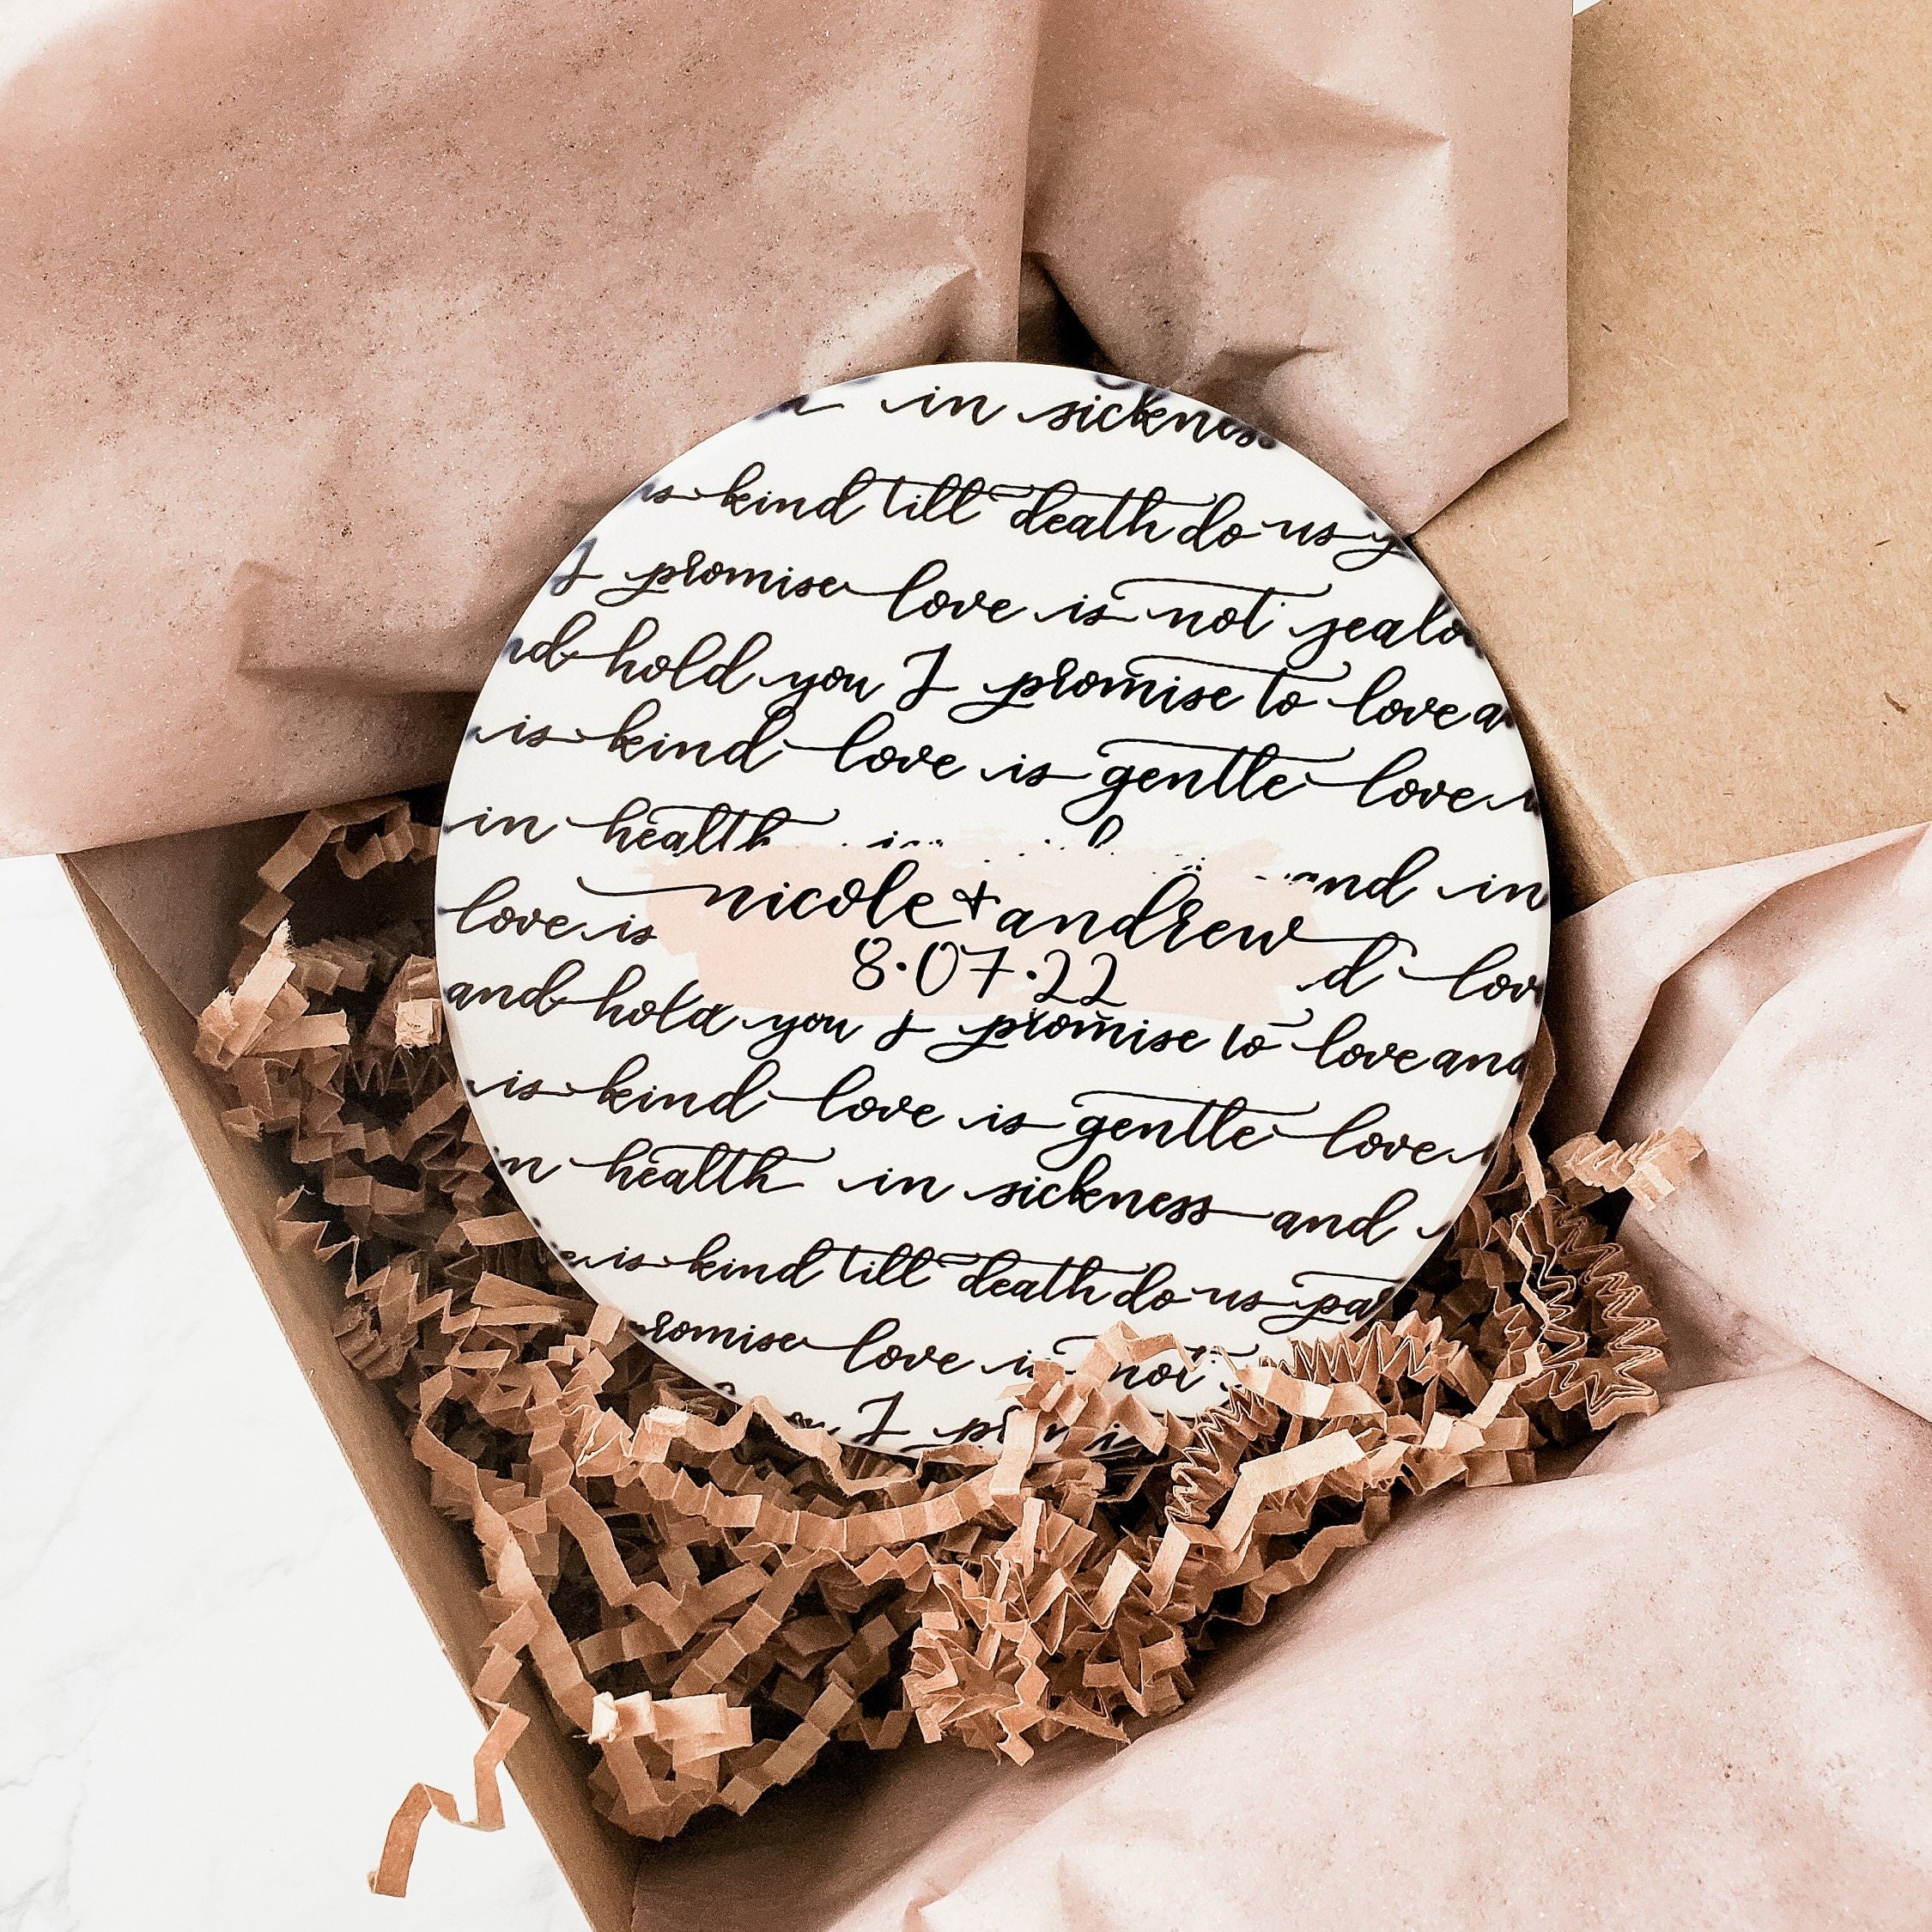 in sickness
is kind till death do us
I promise love is not jealo
nd hold you I promise to love a
is kind love is gentle love
in health and in
nicole + andrew
8.07.22
love is d lov
and hold you I promise to love and
is kind love is gentle love
in health in sickness and
is kind till death do us pa
romise love is not
I